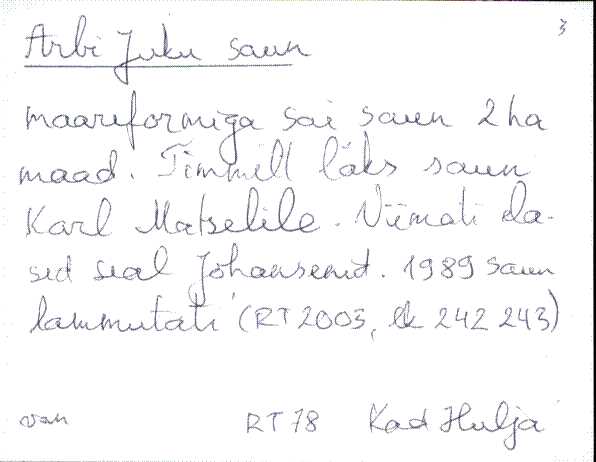 3
Arbi Juku saun
maareformiga sai saun 2 ha
maad. Timmilt läks saun
Karl Matselile. Viimati ela-
sid seal Johansenid. 1989 saun
lammutati (RT 2003, lk 242 243)
van RT 78 Kad Hulja